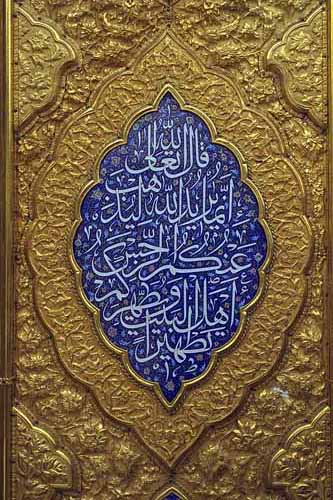 قال الله تعالی
إنما يريد الله ليذهب
عنكم الرجس
أهل البيت ويطهركم
تطهيرا